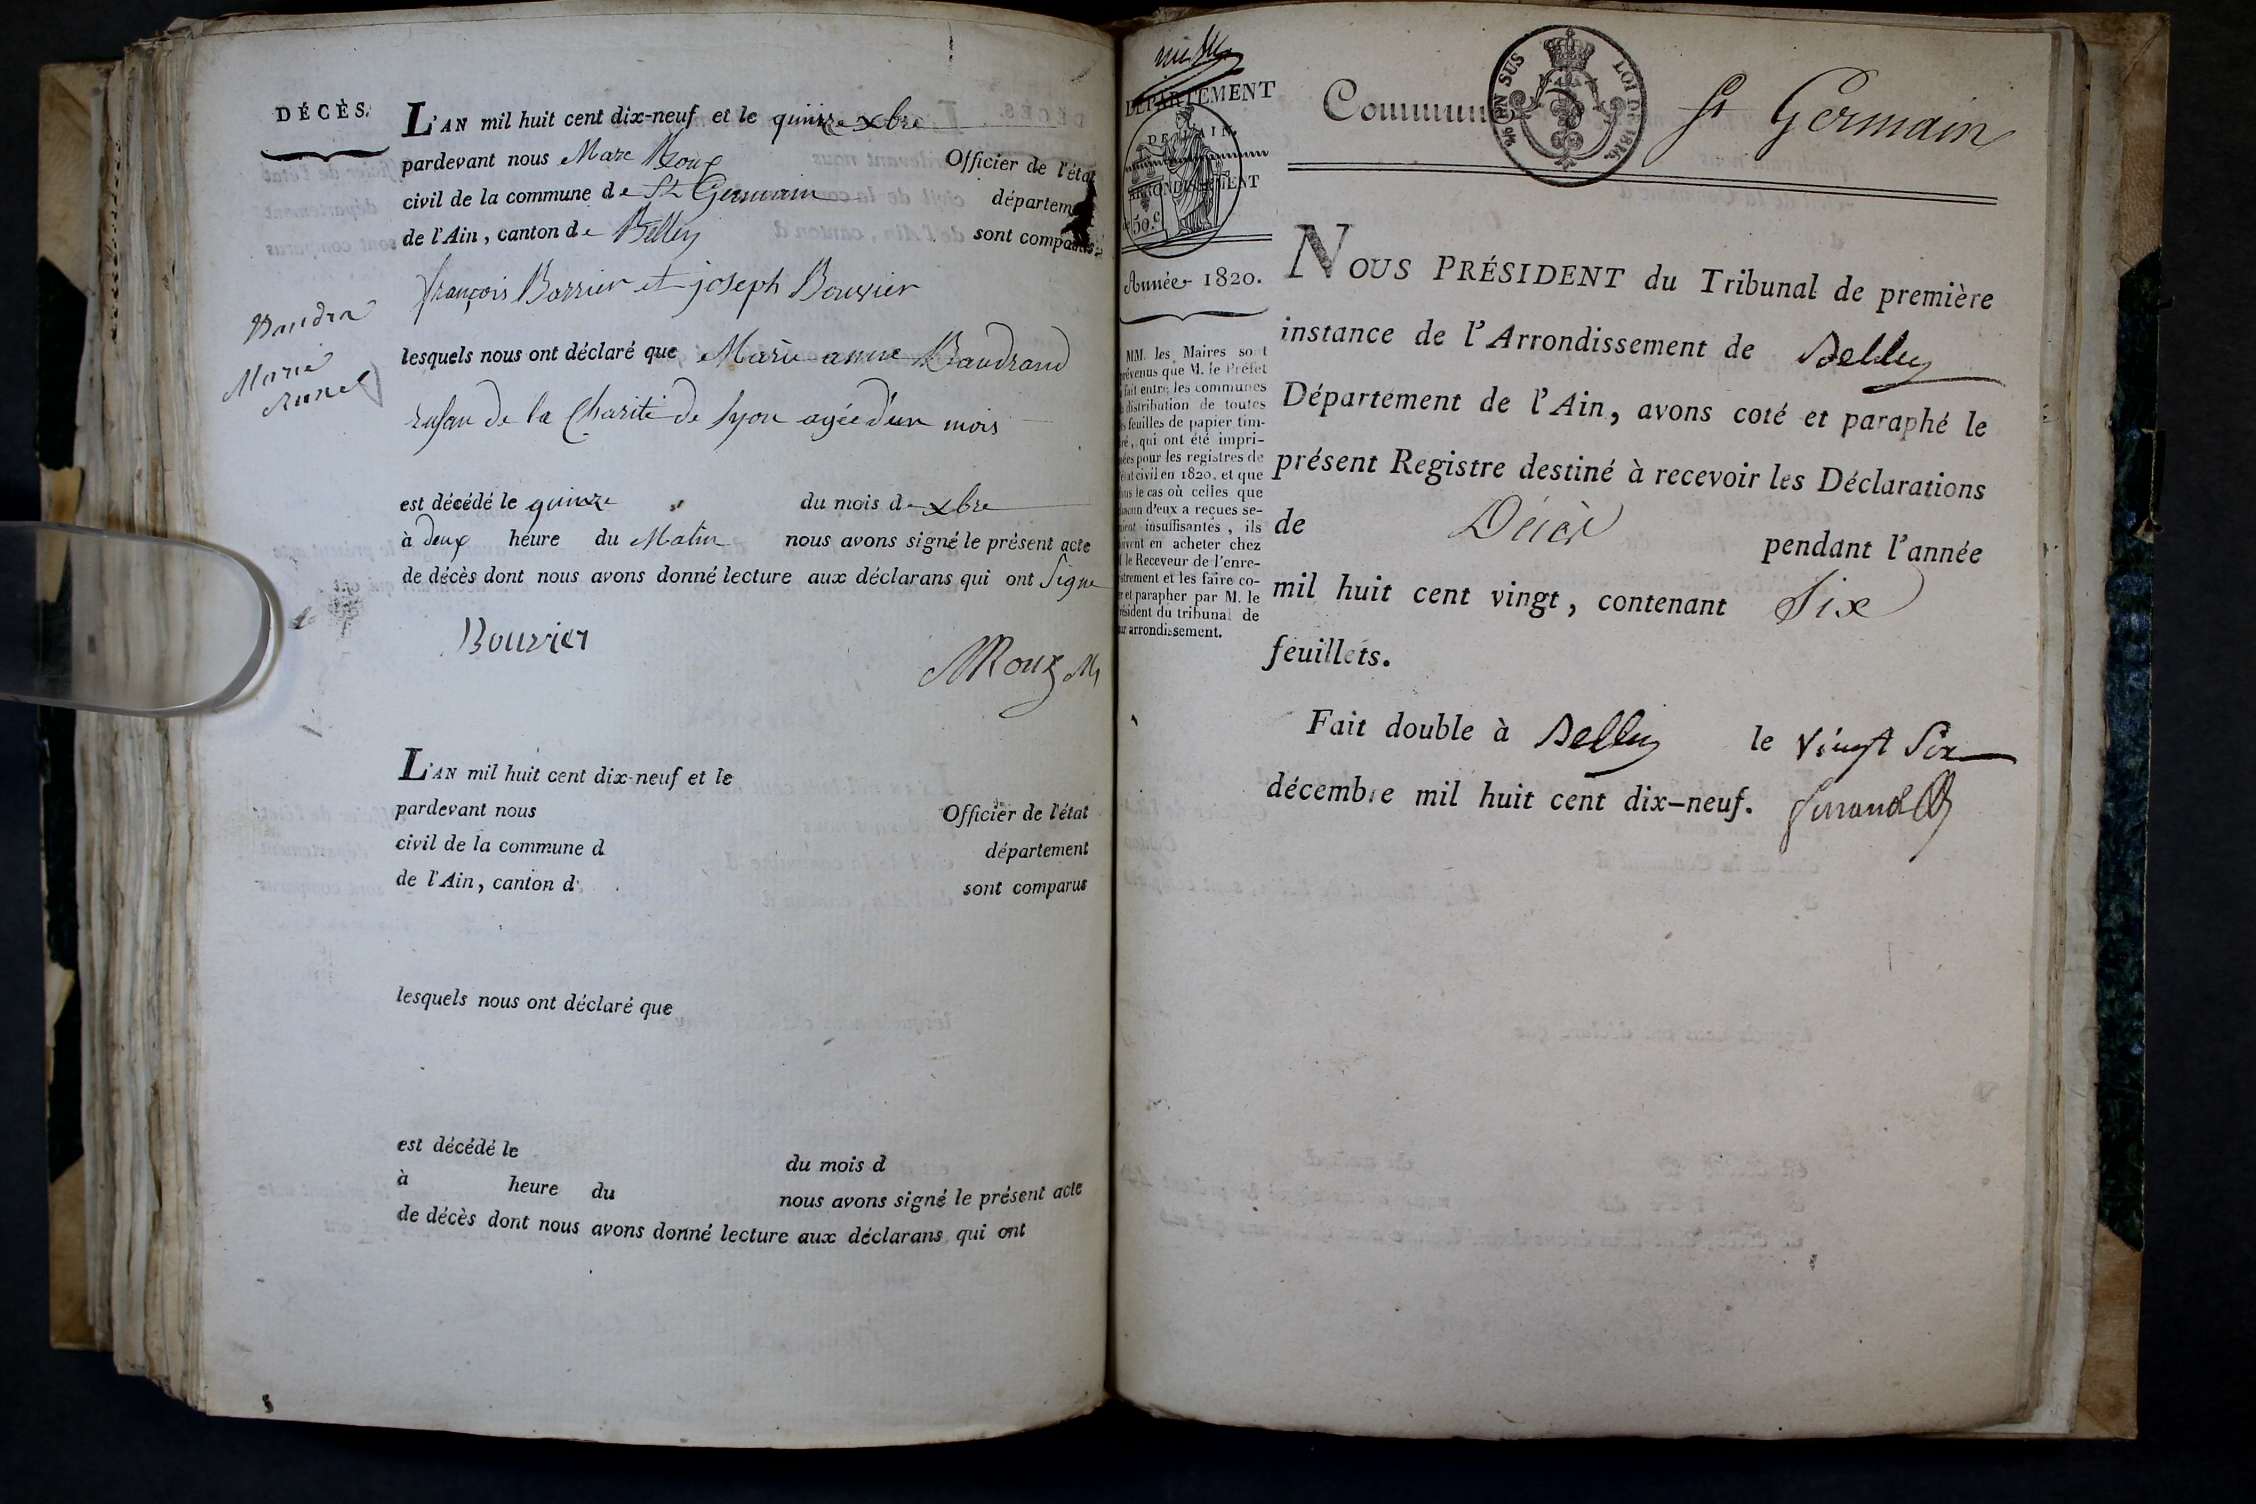 DÉCÈS.
L'AN mil huit cent dix-neuf et le quinze xbre
pardevant nous Marc Roux Officier de l'état
civil de la commune de St Germain départem
de l'Ain, canton de Belley sont comparus
françois Barrier et joseph Bouvier
Baudra
Marie
Anne
lesquels nous ont déclaré que Marie anne Baudrand
enfan de la Charité de lyon agée d'un mois
est décédé le quinze du mois de xbre
à deux heure du Matin nous avons signé le présent acte
de décès dont nous avons donné lecture aux déclarans qui ont Signe
Bouvier
MRoux
L'AN mil huit cent dix-neuf et le
pardevant nous Officier de l'état
civil de la commune d département
de l'Ain, canton d sont comparus
lesquels nous ont déclaré que
est décédé le du mois d
à heure du nous avons signé le présent acte
de décès dont nous avons donné lecture aux déclarans qui ont
DÉPARTEMENT
DE L'AIN.
ARRONDISSEMENT
50.c
Année 1820.
MM. les Maires sont
prévenus que M. le Préfet
fait entre les communes
distribution de toutes
feuilles de papier tim-
bré, qui ont été impri-
mées pour les registres de
l'état civil en 1820, et que
dans le cas où celles que
chacun d'eux a reçues se-
roient insuffisantes, ils
doivent en acheter chez
le Receveur de l'enre-
gistrement et les faire co-
ter et parapher par M. le
président du tribunal de
leur arrondissement.
Commun St Germain
EN SUS
LOI DE 1816.
NOUS PRÉSIDENT du Tribunal de première
instance de l'Arrondissement de Belley
Département de l'Ain, avons coté et paraphé le
présent Registre destiné à recevoir les Déclarations
de Décès pendant l'année
mil huit cent vingt, contenant Six
feuillets.
Fait double à Belley le vingt Six
décembre mil huit cent dix-neuf.